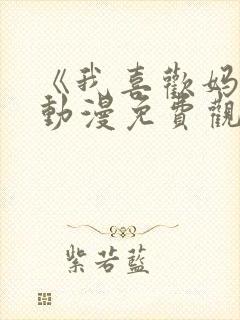 《我喜歡妈
動漫免費觀
紫若藍